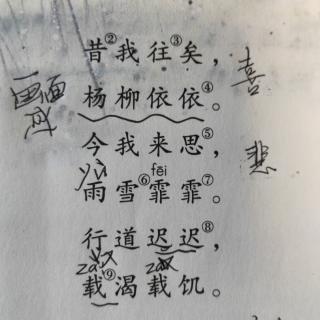 昔②我往③矣，
喜
杨柳依依④。
画面感
今我来思⑤，
悲
yù
fēi
雨雪⑥霏霏⑦。
行道迟迟⑧，
zài
zài
载⑨渴载饥。